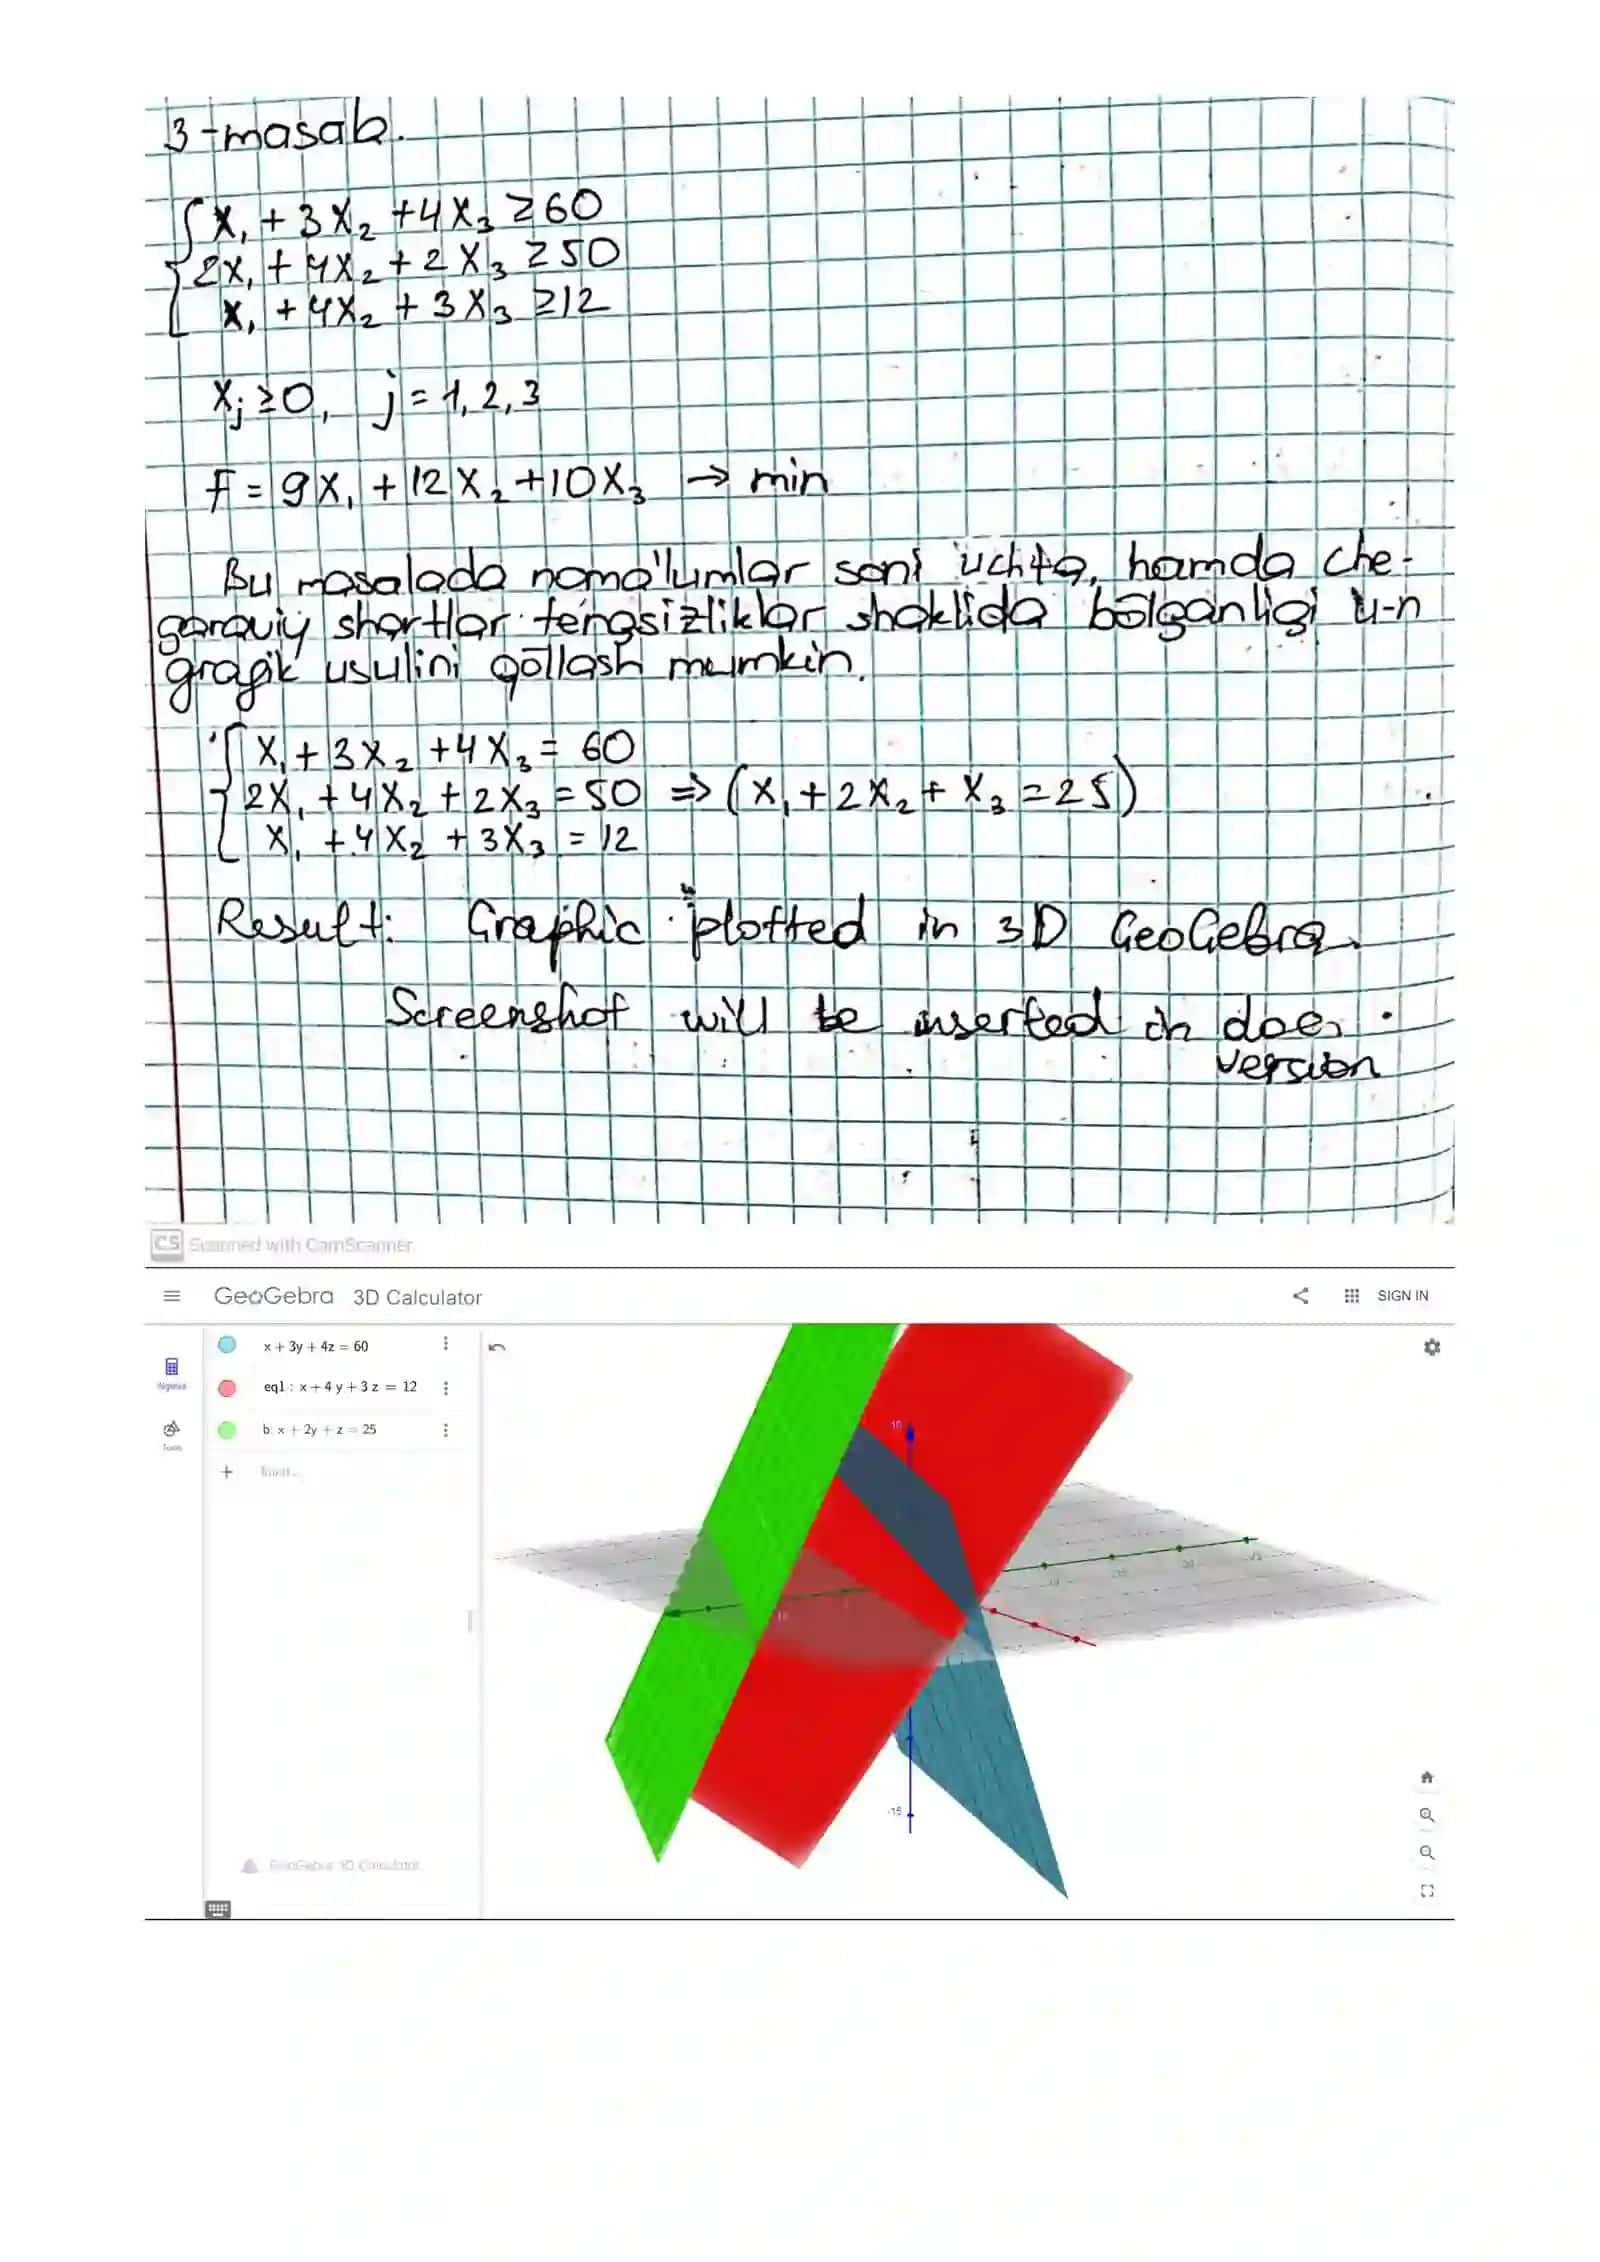 3-masala.
x₁ + 3x₂ + 4x₃ ≥ 60
2x₁ + 4x₂ + 2x₃ ≥ 50
x₁ + 4x₂ + 3x₃ ≥ 12
xⱼ ≥ 0, j = 1, 2, 3
F = 9x₁ + 12x₂ + 10x₃ → min
Bu masalada noma'lumlar soni uchta, hamda che-
garaviy shartlar tengsizliklar shaklida bo̅lganligi u-n
grafik usulini qo̅llash mumkin.
x₁ + 3x₂ + 4x₃ = 60
2x₁ + 4x₂ + 2x₃ = 50 => (x₁ + 2x₂ + x₃ = 25)
x₁ + 4x₂ + 3x₃ = 12
Result: Graphic plotted in 3D GeoGebra.
Screenshot will be inserted in doc.
version
CS Scanned with CamScanner
GeoGebra 3D Calculator
SIGN IN
x + 3y + 4z = 60
eq1 : x + 4 y + 3 z = 12
b: x + 2y + z = 25
+ Input...
Algebra
Tools
10
-15
GeoGebra 3D Calculator